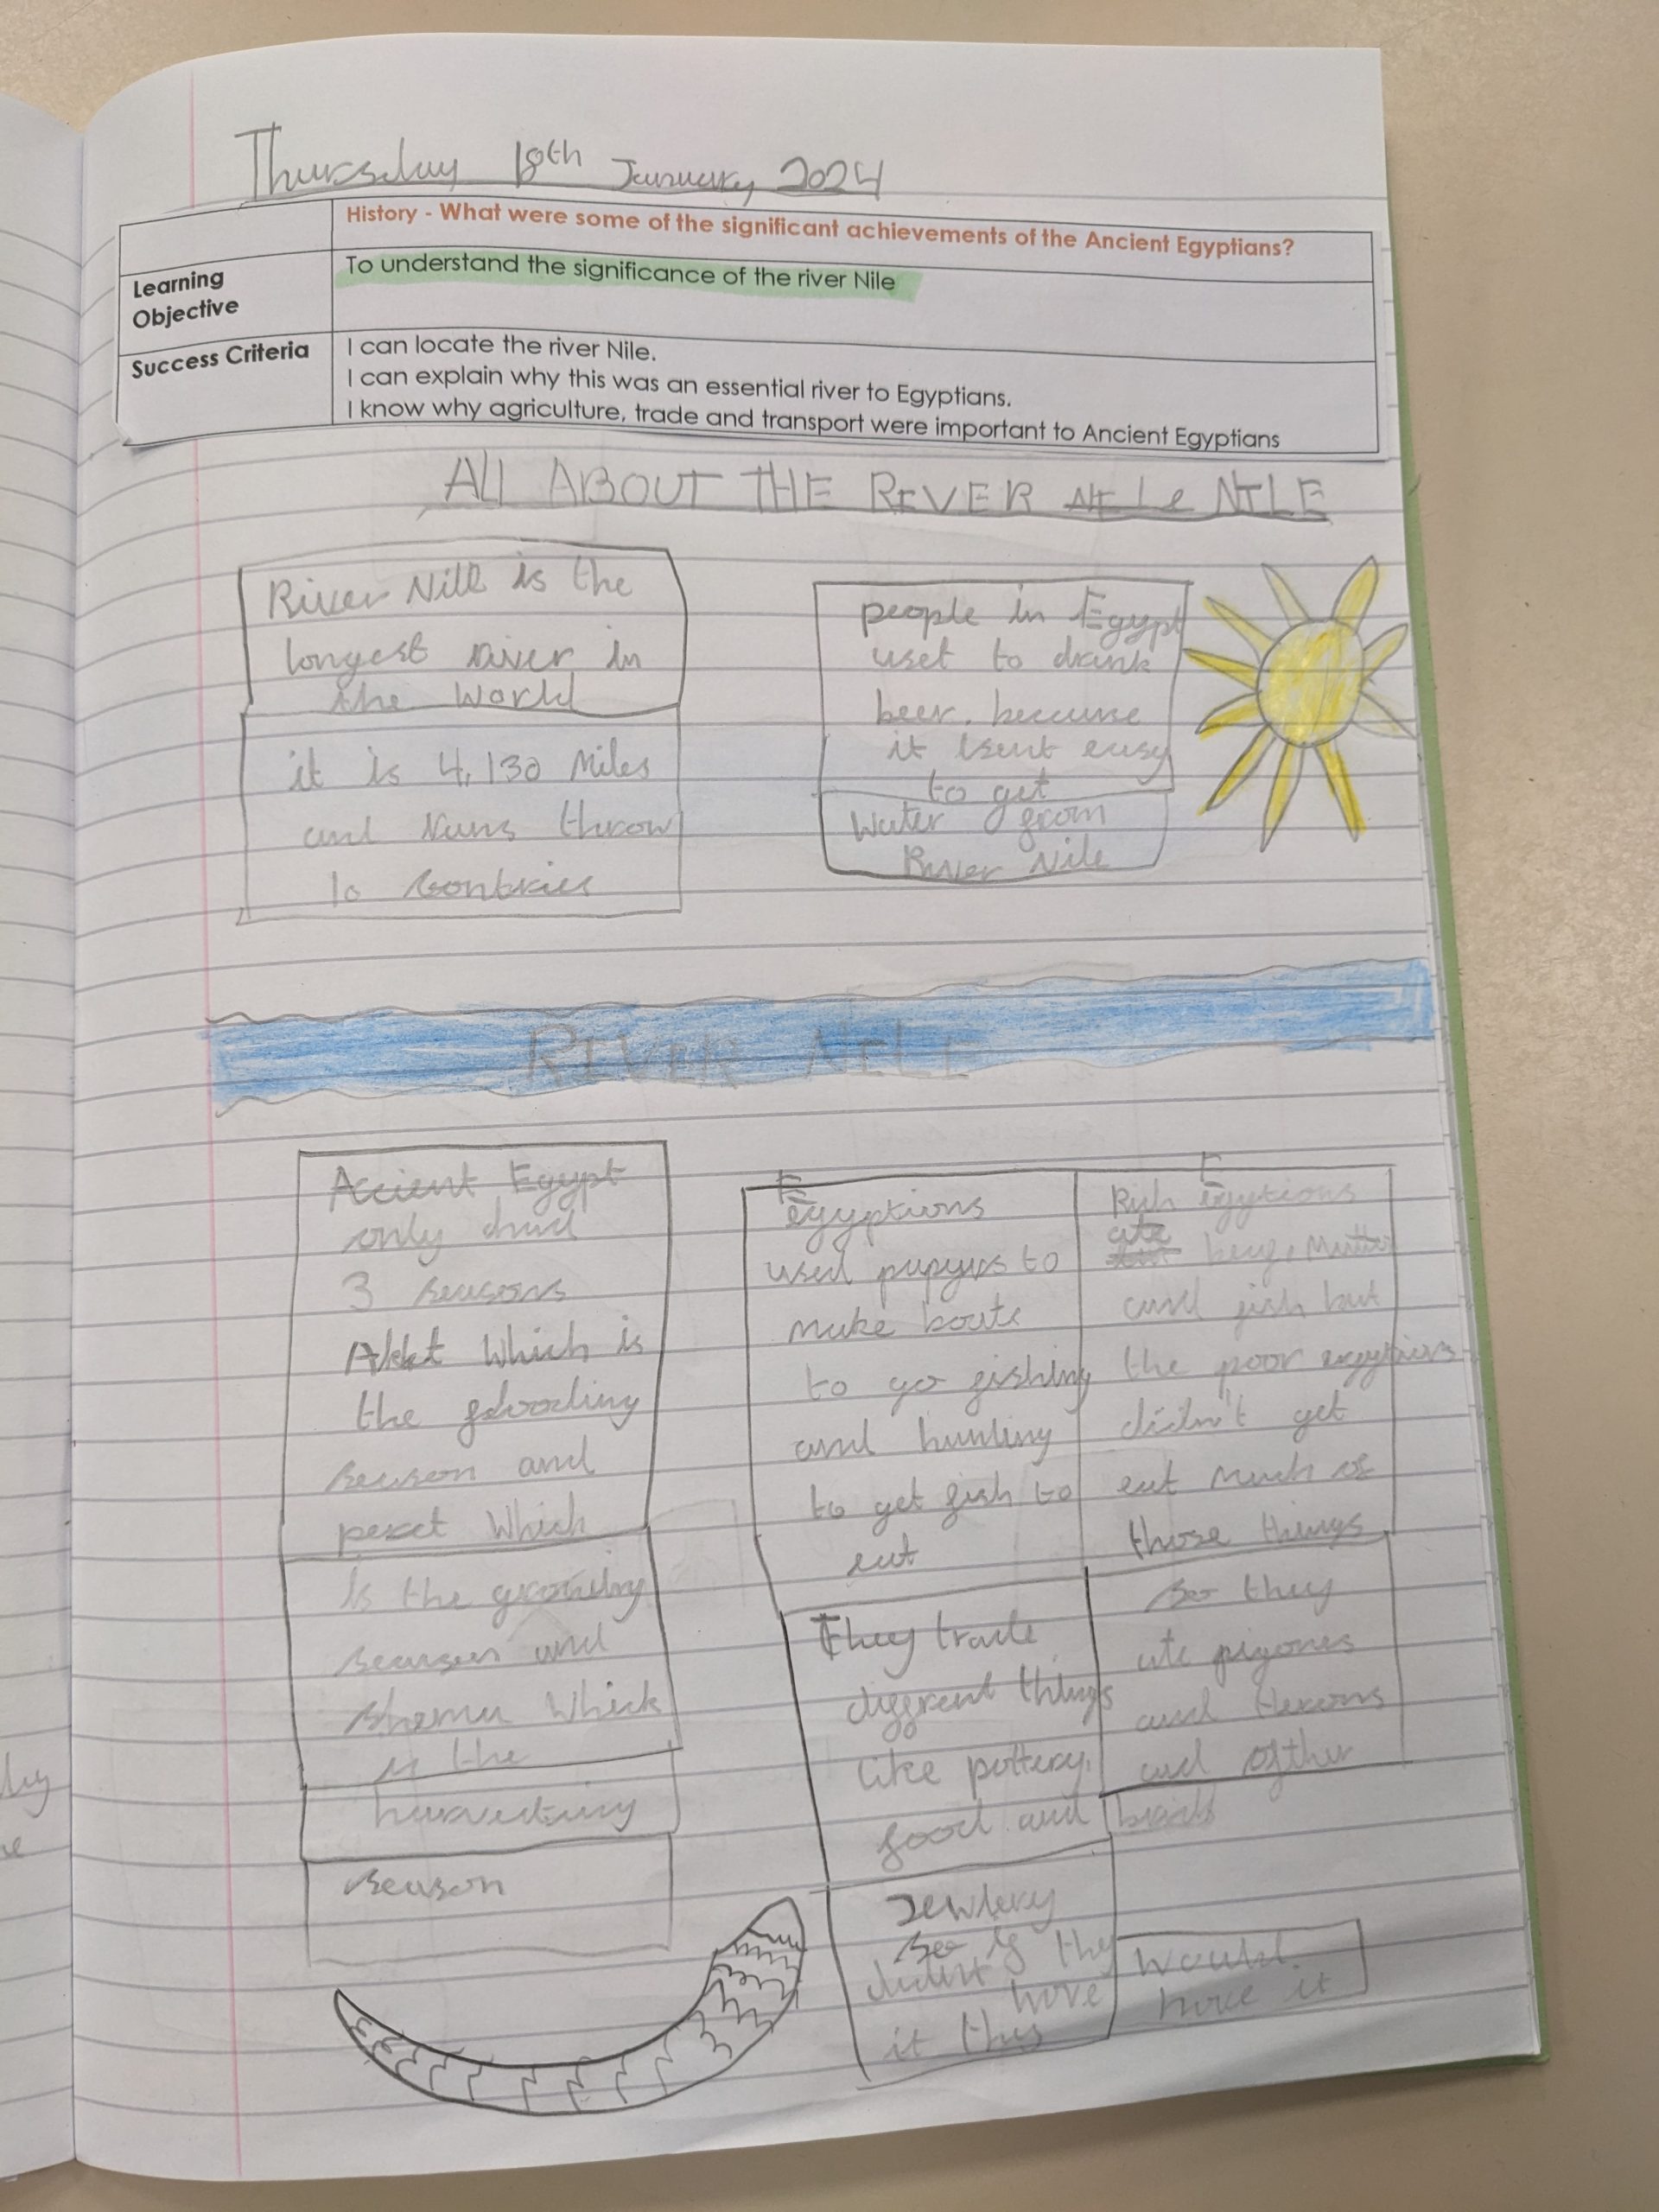 Thursday 18th January 2024
History - What were some of the significant achievements of the Ancient Egyptians?
Learning Objective
To understand the significance of the river Nile
Success Criteria
I can locate the river Nile.
I can explain why this was an essential river to Egyptians.
I know why agriculture, trade and transport were important to Ancient Egyptians
ALL ABOUT THE RIVER NILE
River Nile is the
longest river in
the World
it is 4,130 Miles
and runs throw
10 Contries
people in Egypt
uset to drink
beer. because
it isent easy
to get
Water from
River Nile
RIVER NILE
Accient Egypt
only had
3 seasons
Akket Which is
the flooding
season and
peret Which
is the growing
season and
shemu Which
is the
harvesting
season
Egyptions
used papyrus to
make boats
to go fishing
and hunting
to get fish to
eat
They trade
diffrent things
like pottery,
food and
Jewlery
so if they
didint have
it they
would
have it
Rich Egyptions
ate
and fish but
the poor
didn't get
eat much of
those things
so they
ate pigones
and Herons
and other
birds